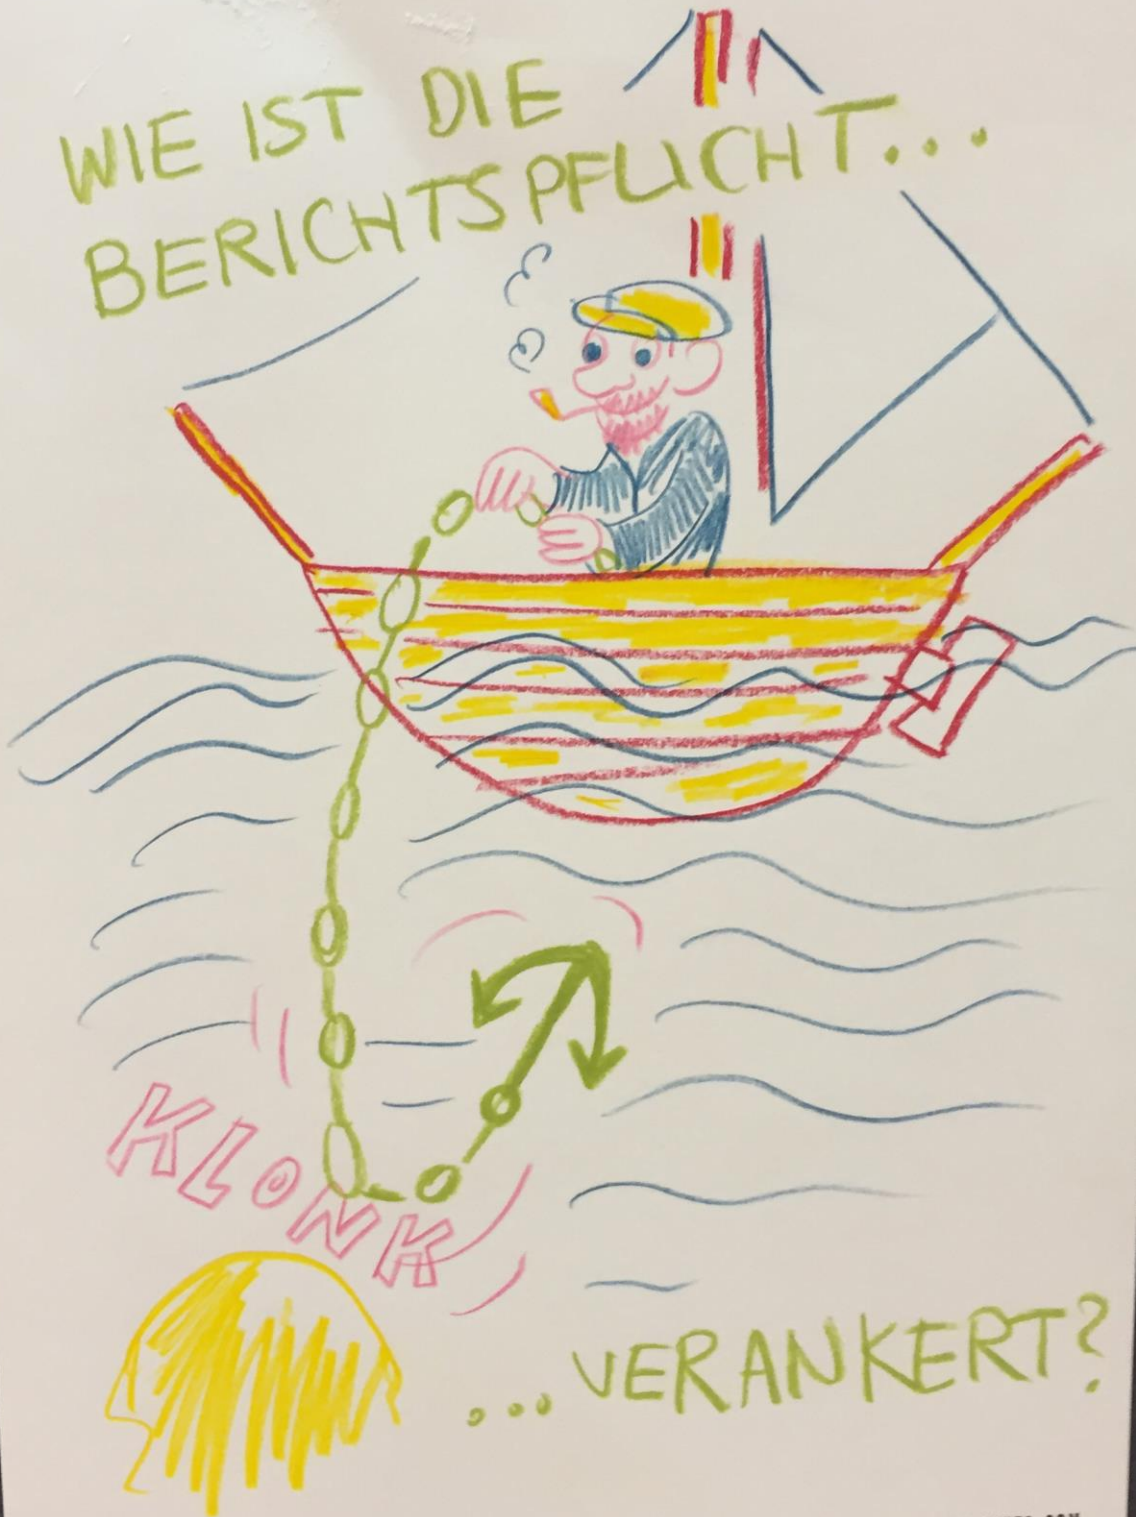 WIE IST DIE
BERICHTSPFLICHT...
KLONK
...VERANKERT?